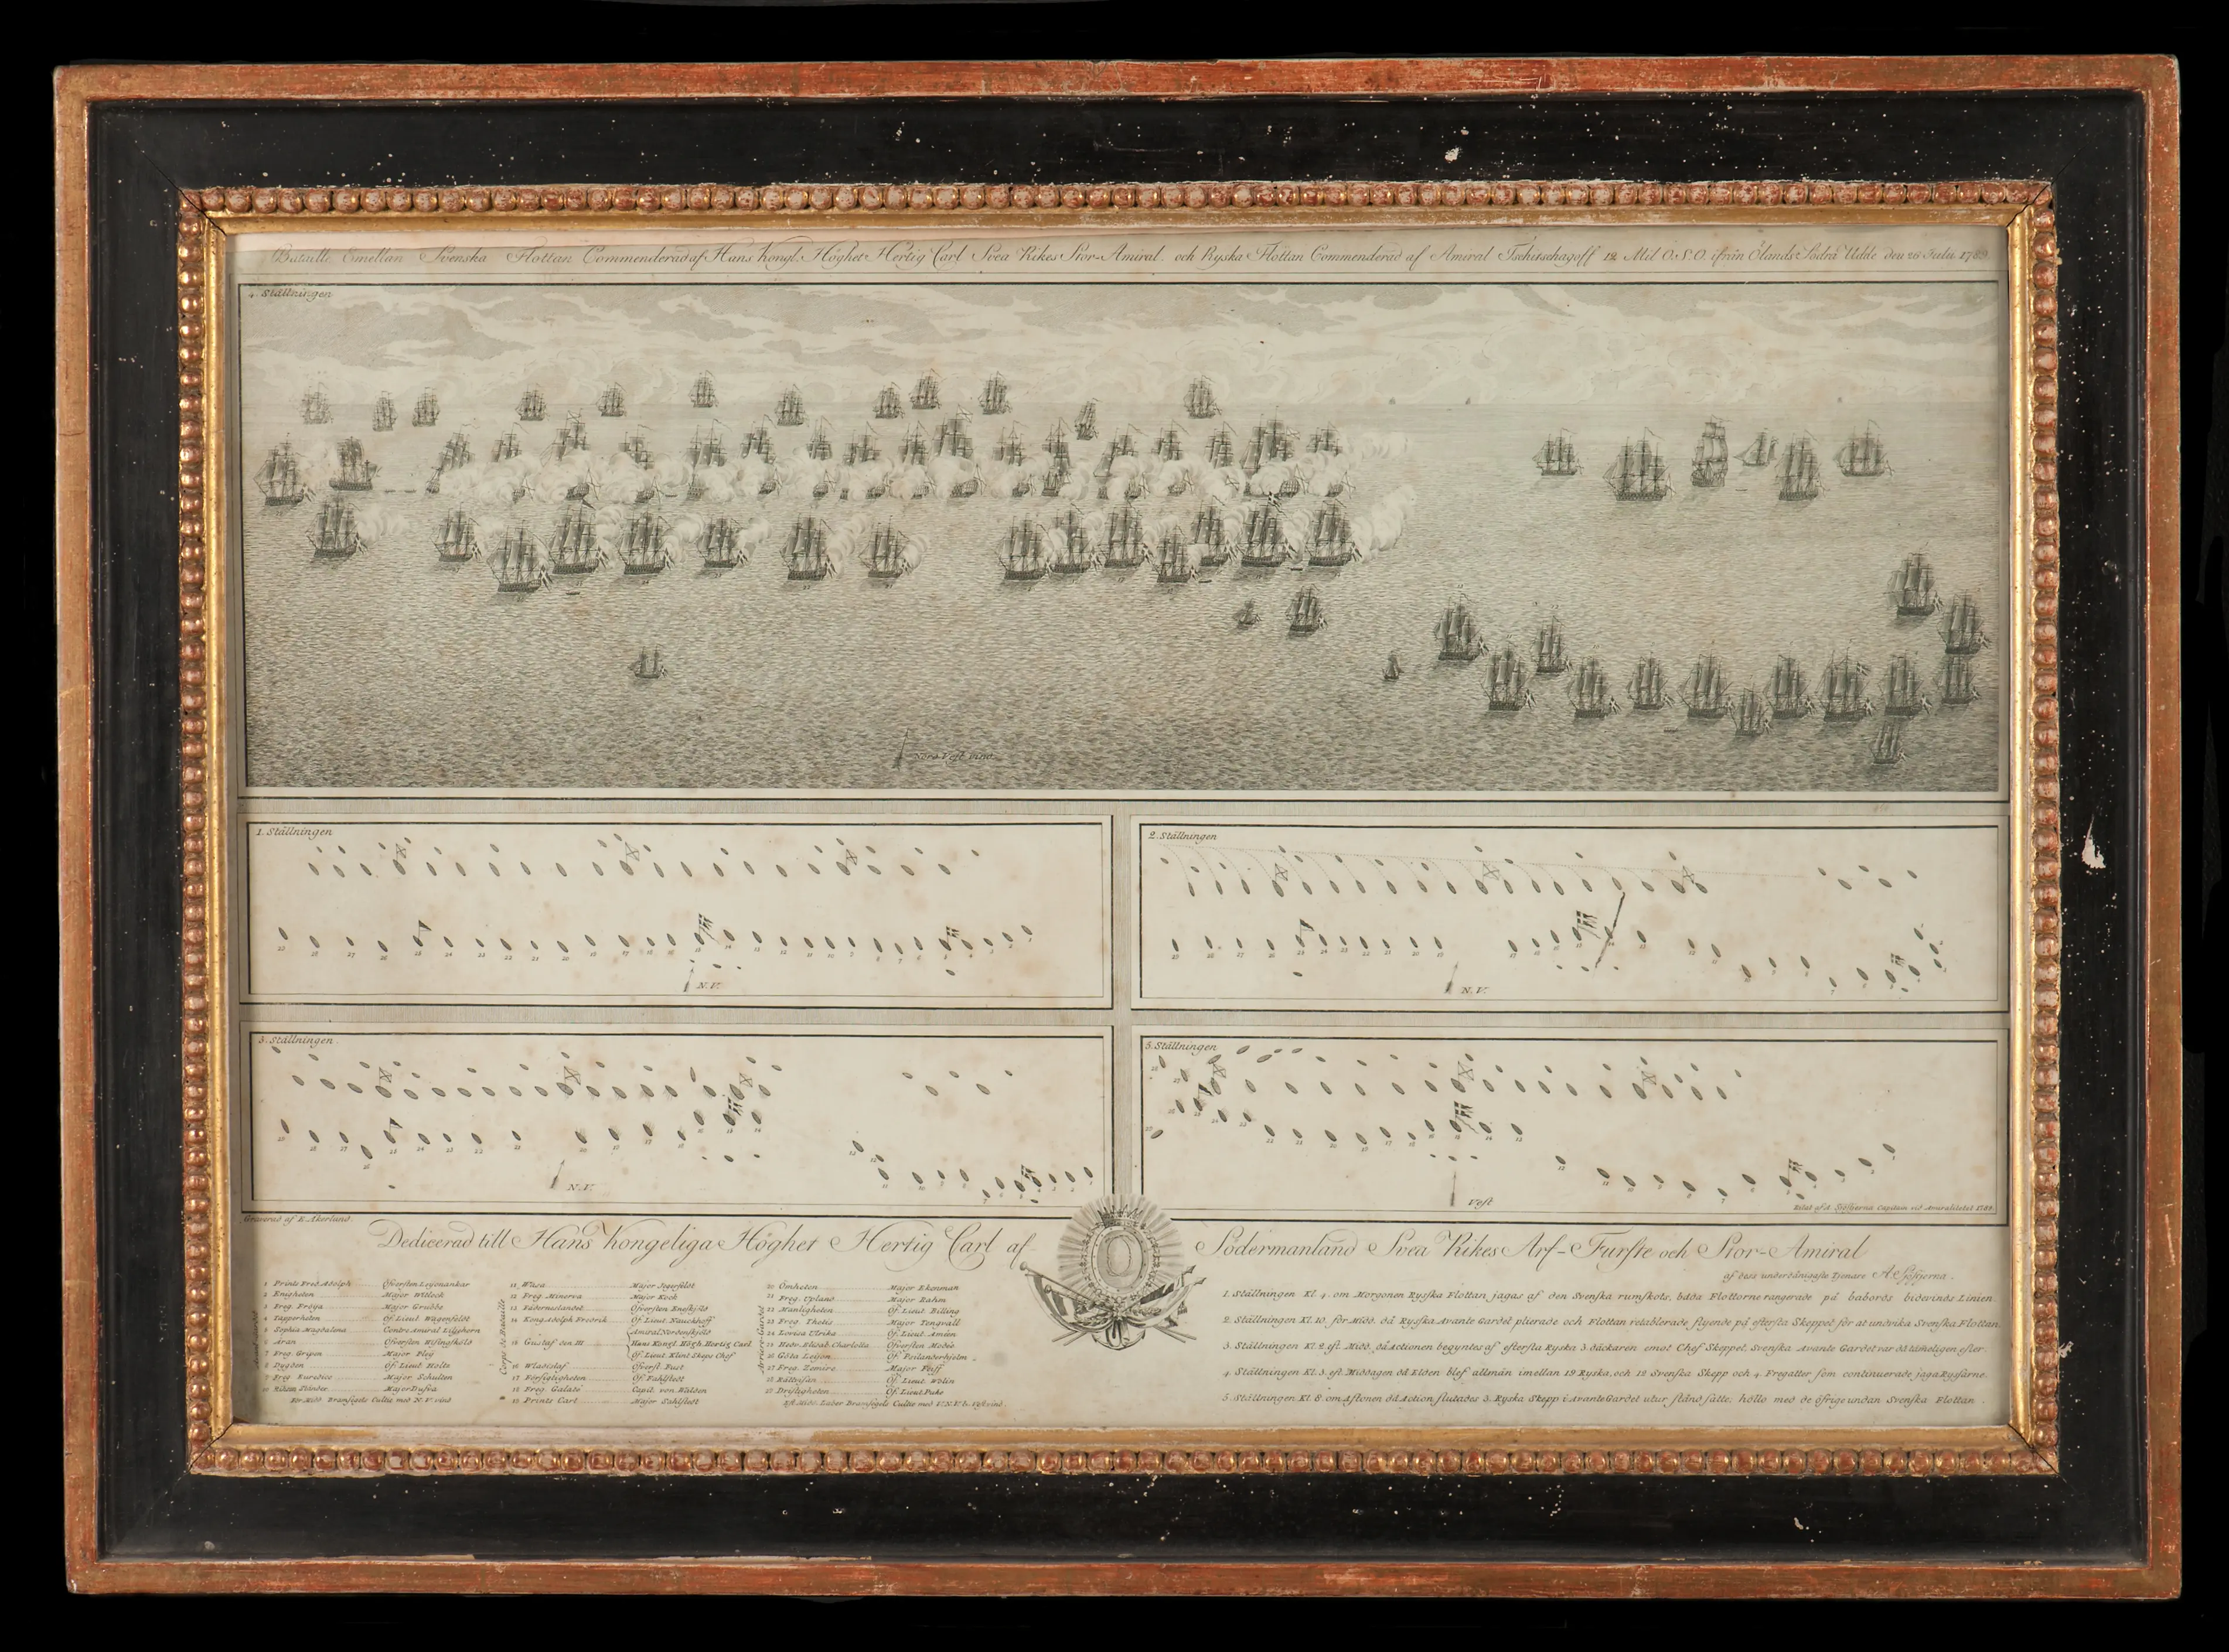 Bataille Emellan Svenska Flottan Commenderad af Hans Kongl. Höghet Hertig Carl Svea Rikes Stor-Amiral. och Ryska Flottan Commenderad af Amiral Tschitschagoff 12 Mil O.S.O. ifrån Ölands Södra Udde den 26 Julii 1789.
4. Ställningen
Nord Vest vind
1. Ställningen
N.V.
2. Ställningen
N.V.
3. Ställningen.
N.V.
5. Ställningen
Vest
Ritat af A. Sjöstjerna Capitain vid Amiralitetet 1789.
Graverad af E. Åkerland.
Dedicerad till Hans Kongeliga Höghet Hertig Carl af Södermanland Svea Rikes Arf-Furste och Stor-Amiral
af dess underdånigaste Tjenare A Sjöstjerna.
1 Prints Fred. Adolph Öfversten Leijonankar
2 Enigheten Major Witlock
3 Freg. Fröya Major Grubbe
4 Tapperheten Öf. Lieut. Wagenfeldt
5 Sophia Magdalena Contre Amiral Liljehorn
6 Äran Öfversten Wisingsköld
7 Freg. Gripen Major Pleij
8 Dygden Öf. Lieut. Holts
9 Freg. Euredice Major Schulten
10 Riksens Ständer Major Dufva
För Midd. Bramsegels Cultie med N.V. vind
Corps de Bataille
11 Wasa Major Jegerfeldt
12 Freg. Minerva Major Kock
13 Fäderneslandet Öfversten Eneskjöld
14 Kong Adolph Fredrik Öf. Lieut. Nauckhoff
15 Gustaf den III Amiral Nordenskjöld
Hans Kongl. Högh. Hertig Carl
Öf. Lieut. Klint Skeps Chef
16 Wladislaf Öfverst. Fust
17 Försigtigheten Öf. Fahlstedt
18 Freg. Galadé Capit. von Wälden
19 Prints Carl Major Sahlstedt
Arriere-Gardet
20 Ömheten Major Ekenman
21 Freg. Upland Major Rahm
22 Manligheten Öf. Lieut. Billing
23 Freg. Thetis Major Tengvall
24 Lovisa Ulrika Öf. Lieut. Amien
25 Hedv. Elisab. Charlotta Öfversten Modée
26 Göta Leijon Öf. Psilanderhjelm
27 Freg. Zemire Major Feiff
28 Rättvisan Öf. Lieut. Wölin
29 Dristigheten Öf. Lieut. Puke
Eft. Midd. Laber Bramsegels Cultie med V.N.V. à Vest vind
1. Ställningen Kl. 4. om Morgonen Rysska Flottan jagas af den Svenska rumskots, båda Flottorne rangerade på babords bidevinds Linien.
2. Ställningen Kl. 10. för Midd. då Rysska Avante Gardet plierade och Flottan retablorade flyende på eftersta Skeppet för at undvika Svenska Flottan.
3. Ställningen Kl. 2. eft. Midd. då Actionen begyntes af eftersta Ryska 3 däckaren emot Chef Skeppet, Svenska Avante Gardet var då tämeligen efter.
4. Ställningen Kl. 3. eft. Middagen då Elden blef allmän imellan 19 Ryska, och 12 Svenska Skepp och 4. Fregatter som continuerade jaga Ryssarne.
5. Ställningen Kl. 8. om Aftonen då Action slutades 3. Ryska Skepp i Avante Gardet utur stånd satte, höllo med de öfrige undan Svenska Flottan.